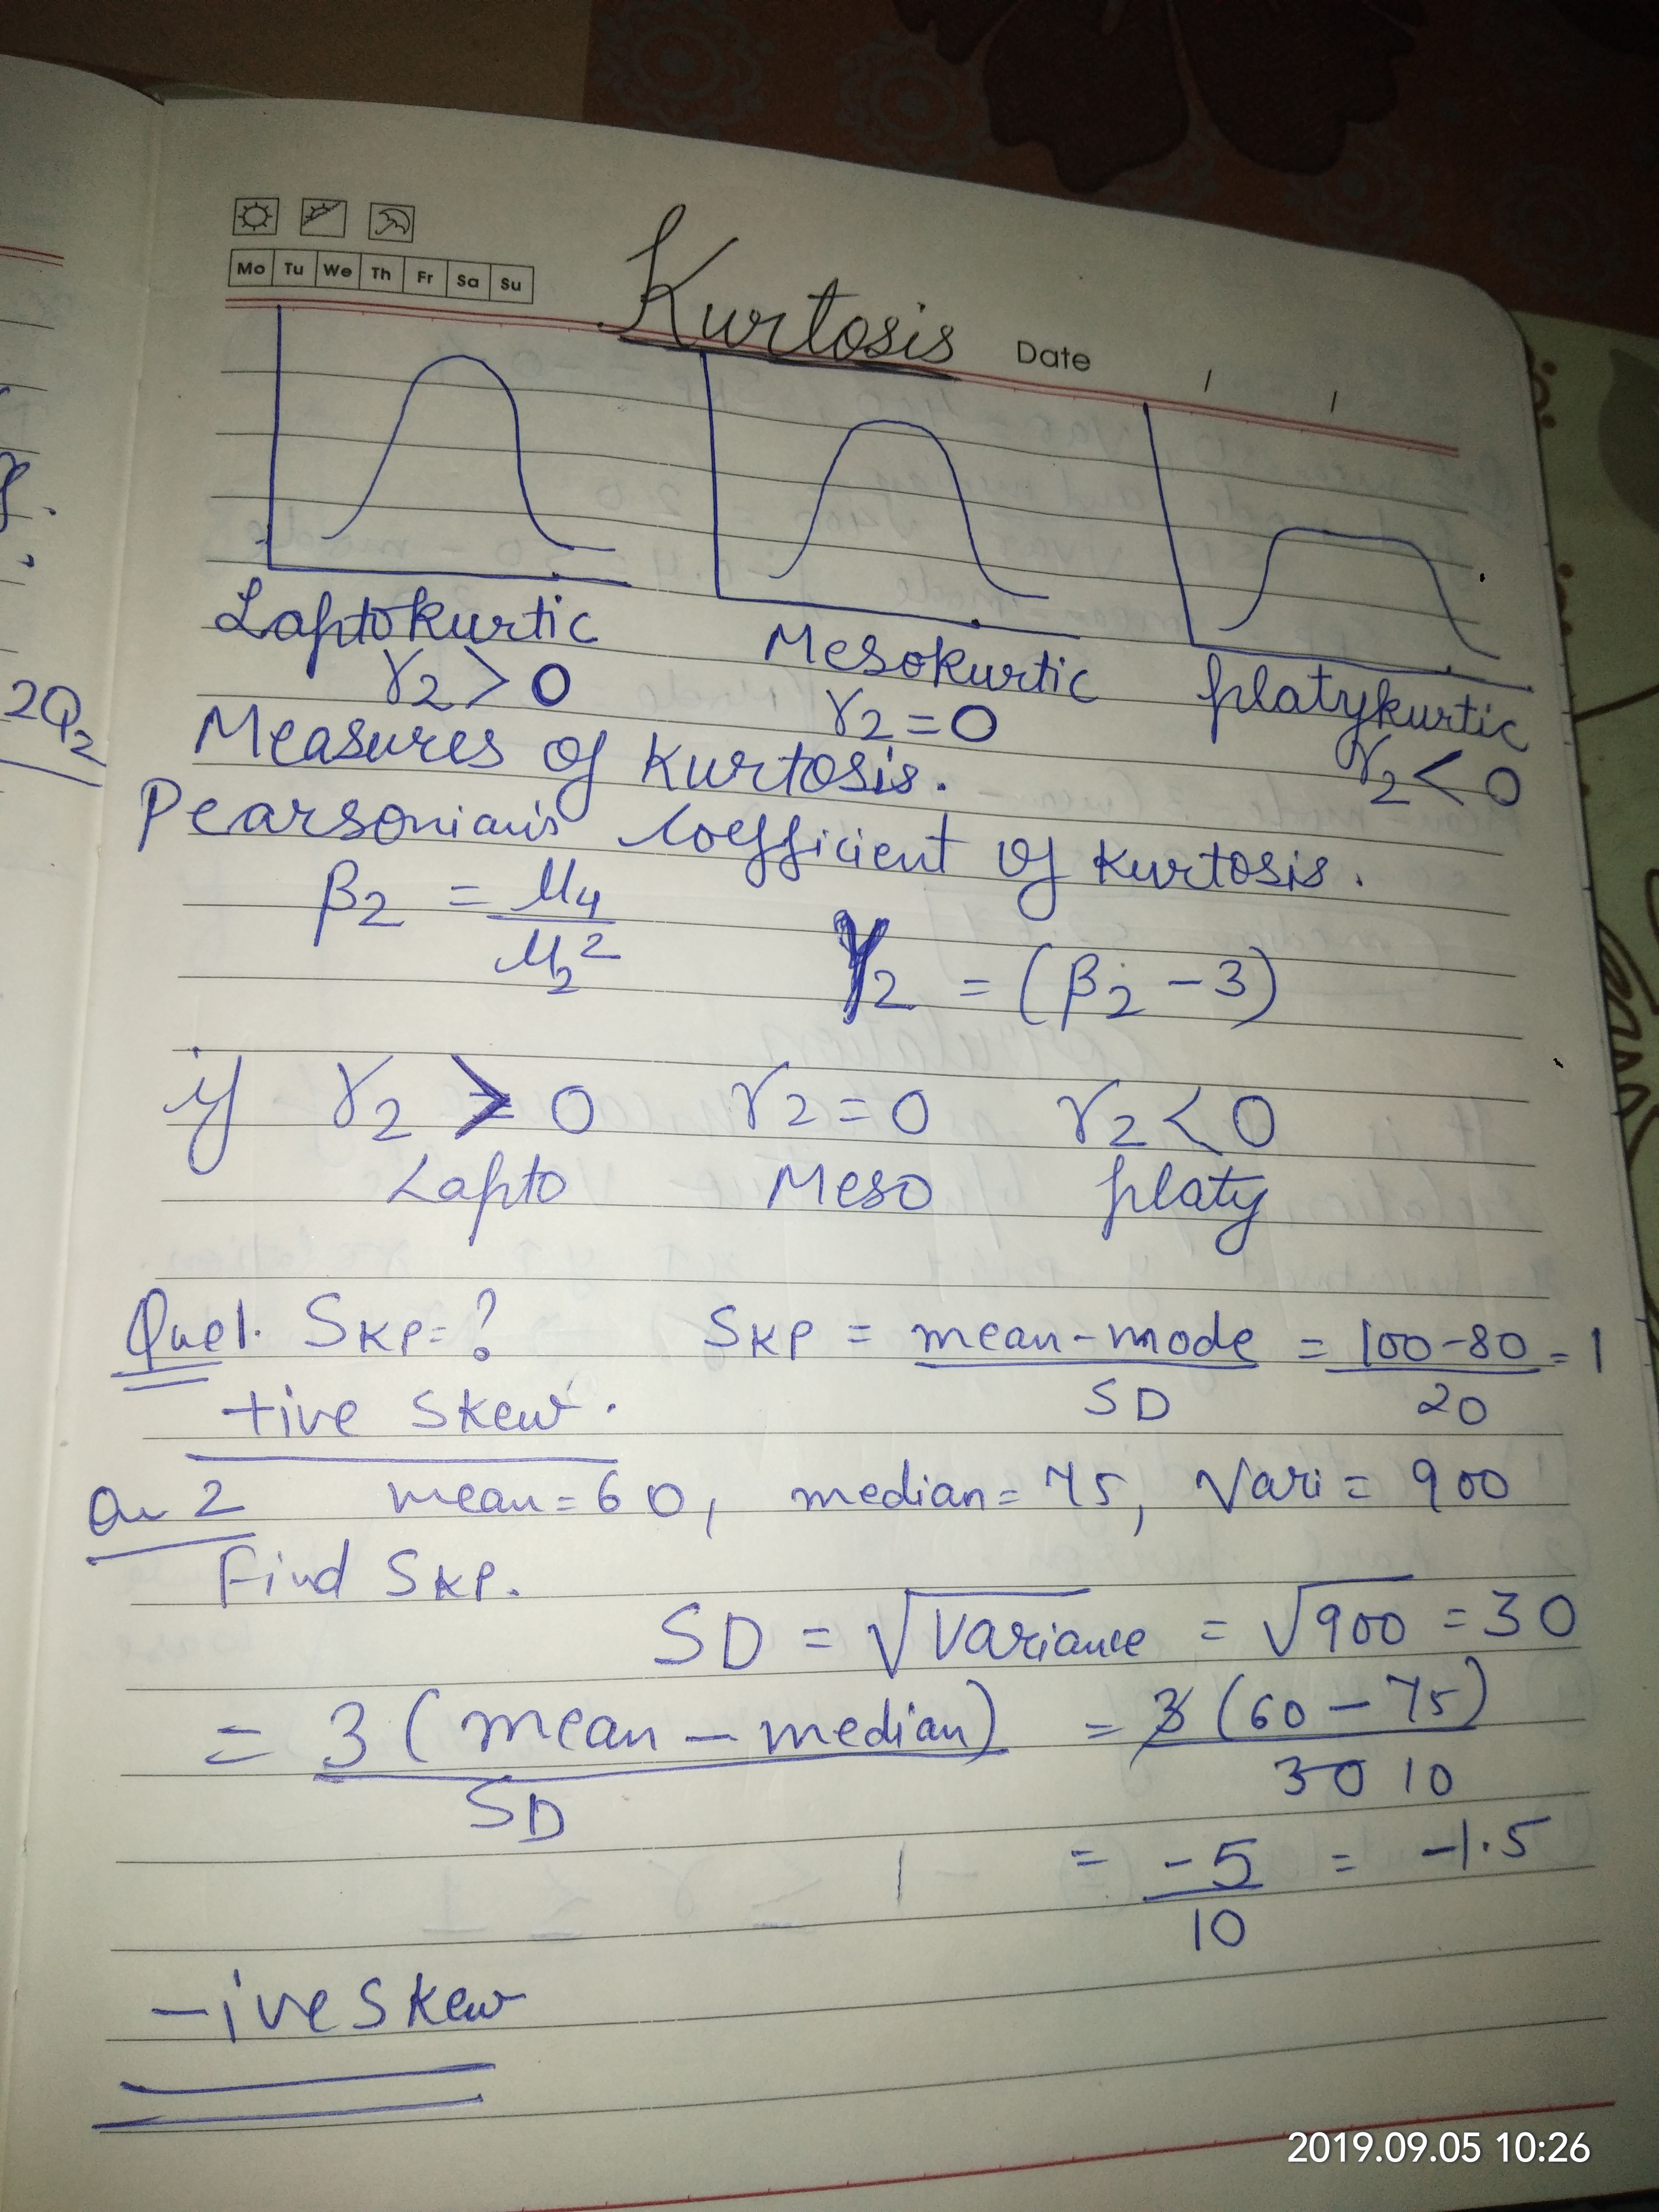 Mo Tu We Th Fr Sa Su
Kurtosis
Date / /
Laptokurtic
Mesokurtic
platykurtic
γ2 > 0
γ2 = 0
γ2 < 0
2Q2
Measures of Kurtosis.
Pearsonian's Coefficient of Kurtosis.
β2 = μ4 / μ2²
γ2 = (β2 - 3)
if γ2 > 0 γ2 = 0 γ2 < 0
Lapto Meso platy
Que1. SKP = ? SKP = mean - mode / SD = 100 - 80 / 20 = 1
+ive Skew.
Qu 2 mean = 60, median = 75, Vari = 900
Find SKP.
SD = √Variance = √900 = 30
= 3 (mean - median) / SD = 3 (60 - 75) / 30 10
= -5 / 10 = -1.5
-ive Skew
2019.09.05 10:26